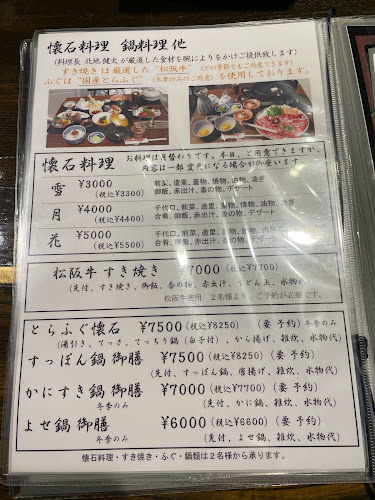 懐石料理 鍋料理 他
(料理長 北地 健太 が厳選した食材を腕によりをかけご提供致します)
すき焼き は 厳選した "松阪牛" (どの季節でもご用意できます)
ふぐは "国産とらふぐ" (冬季のみのご用意) を使用しております。
懐石料理 お料理は月替わりです。本日、ご用意できますが、
内容は一部変更になる場合が御座います
雪 ¥3000 (税込¥3300) 前菜、造里、蓋物、焼物、油物、凌ぎ
御飯、赤出汁、香の物、デザート
月 ¥4000 (税込¥4400) 千代口、前菜、造里、蓋物、焼物、油物
合肴、御飯、赤出汁、香の物、デザート
花 ¥5000 (税込¥5500) 千代口、前菜、造里、蓋物、焼物、油物、凌ぎ
合肴、御飯、赤出汁、香の物、デザート
松阪牛 すき焼き ¥7000 (税込¥7700)
(先付、すき焼き、御飯、香の物、赤出汁、うどん玉、水物代)
松阪牛使用 2名様より、ご予約が必要です。
とらふぐ懐石 ¥7500 (税込¥8250) (要 予約) 冬季のみ
(湯引き、てっさ、てっちり鍋(白子付)、から揚げ、雑炊、水物代)
すっぽん鍋 御膳 ¥7500 (税込¥8250) (要 予約)
(先付、すっぽん鍋、唐揚げ、雑炊、水物代)
かにすき鍋 御膳 ¥7000 (税込¥7700) (要 予約)
冬季のみ (先付、かに鍋、雑炊、水物代)
よせ鍋 御膳 ¥6000 (税込¥6600) (要 予約)
冬季のみ (先付、よせ鍋、雑炊、水物代)
懐石料理・すき焼き・ふぐ・鍋類は2名様から承ります。